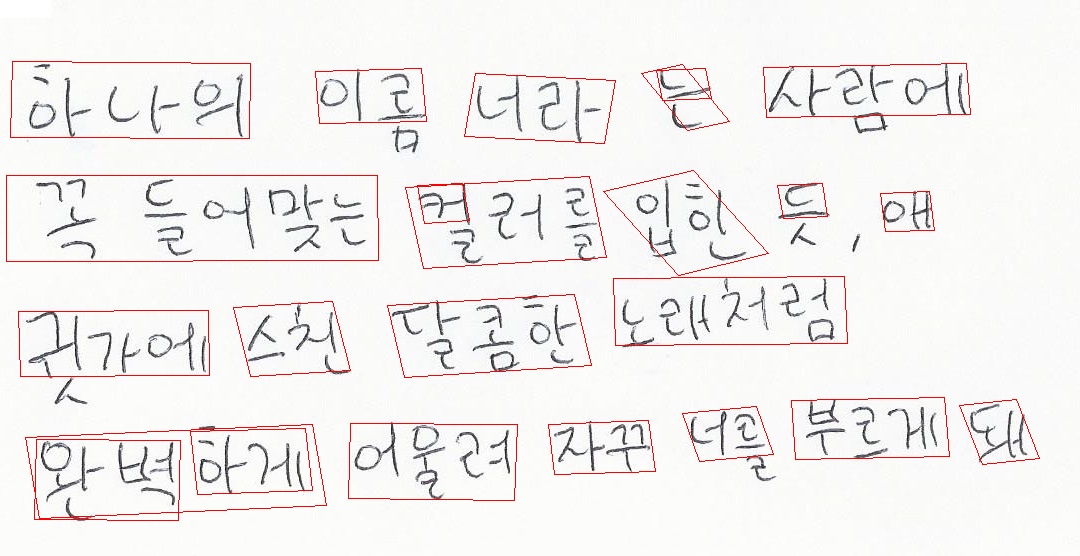 하나의 이름 너라 는 사람에
꼭 들어맞는 컬러를 입힌 듯, 애
귓가에 스친 달콤한 노래처럼
완벽하게 어울려 자꾸 너를 부르게 돼